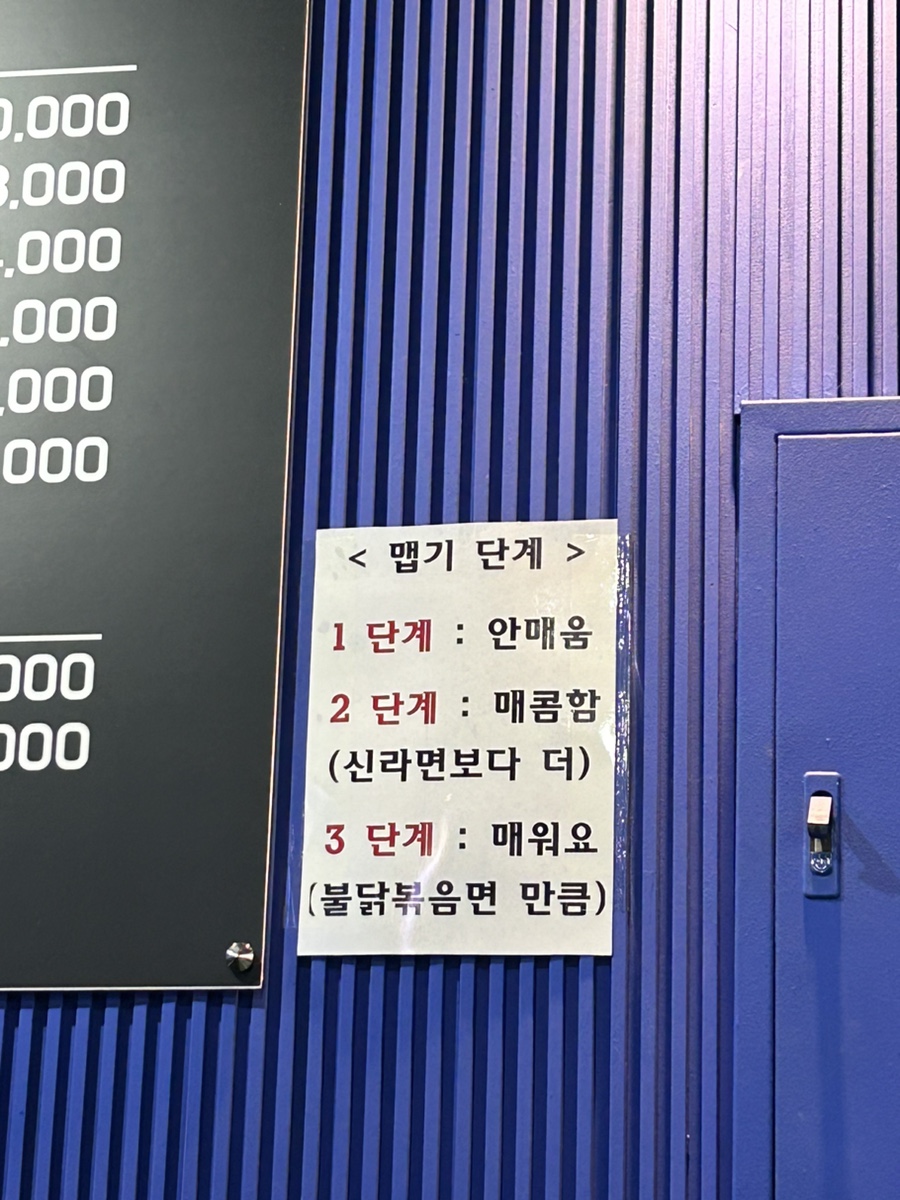 ,000
,000
,000
,000
,000
000
000
000
< 맵기 단계 >
1 단계 : 안매움
2 단계 : 매콤함
(신라면보다 더)
3 단계 : 매워요
(불닭볶음면 만큼)